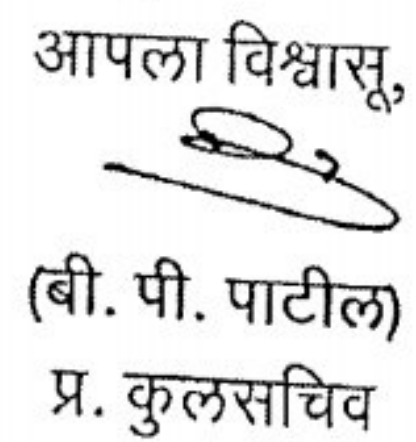 आपला विश्वासू,
(बी. पी. पाटील)
प्र. कुलसचिव